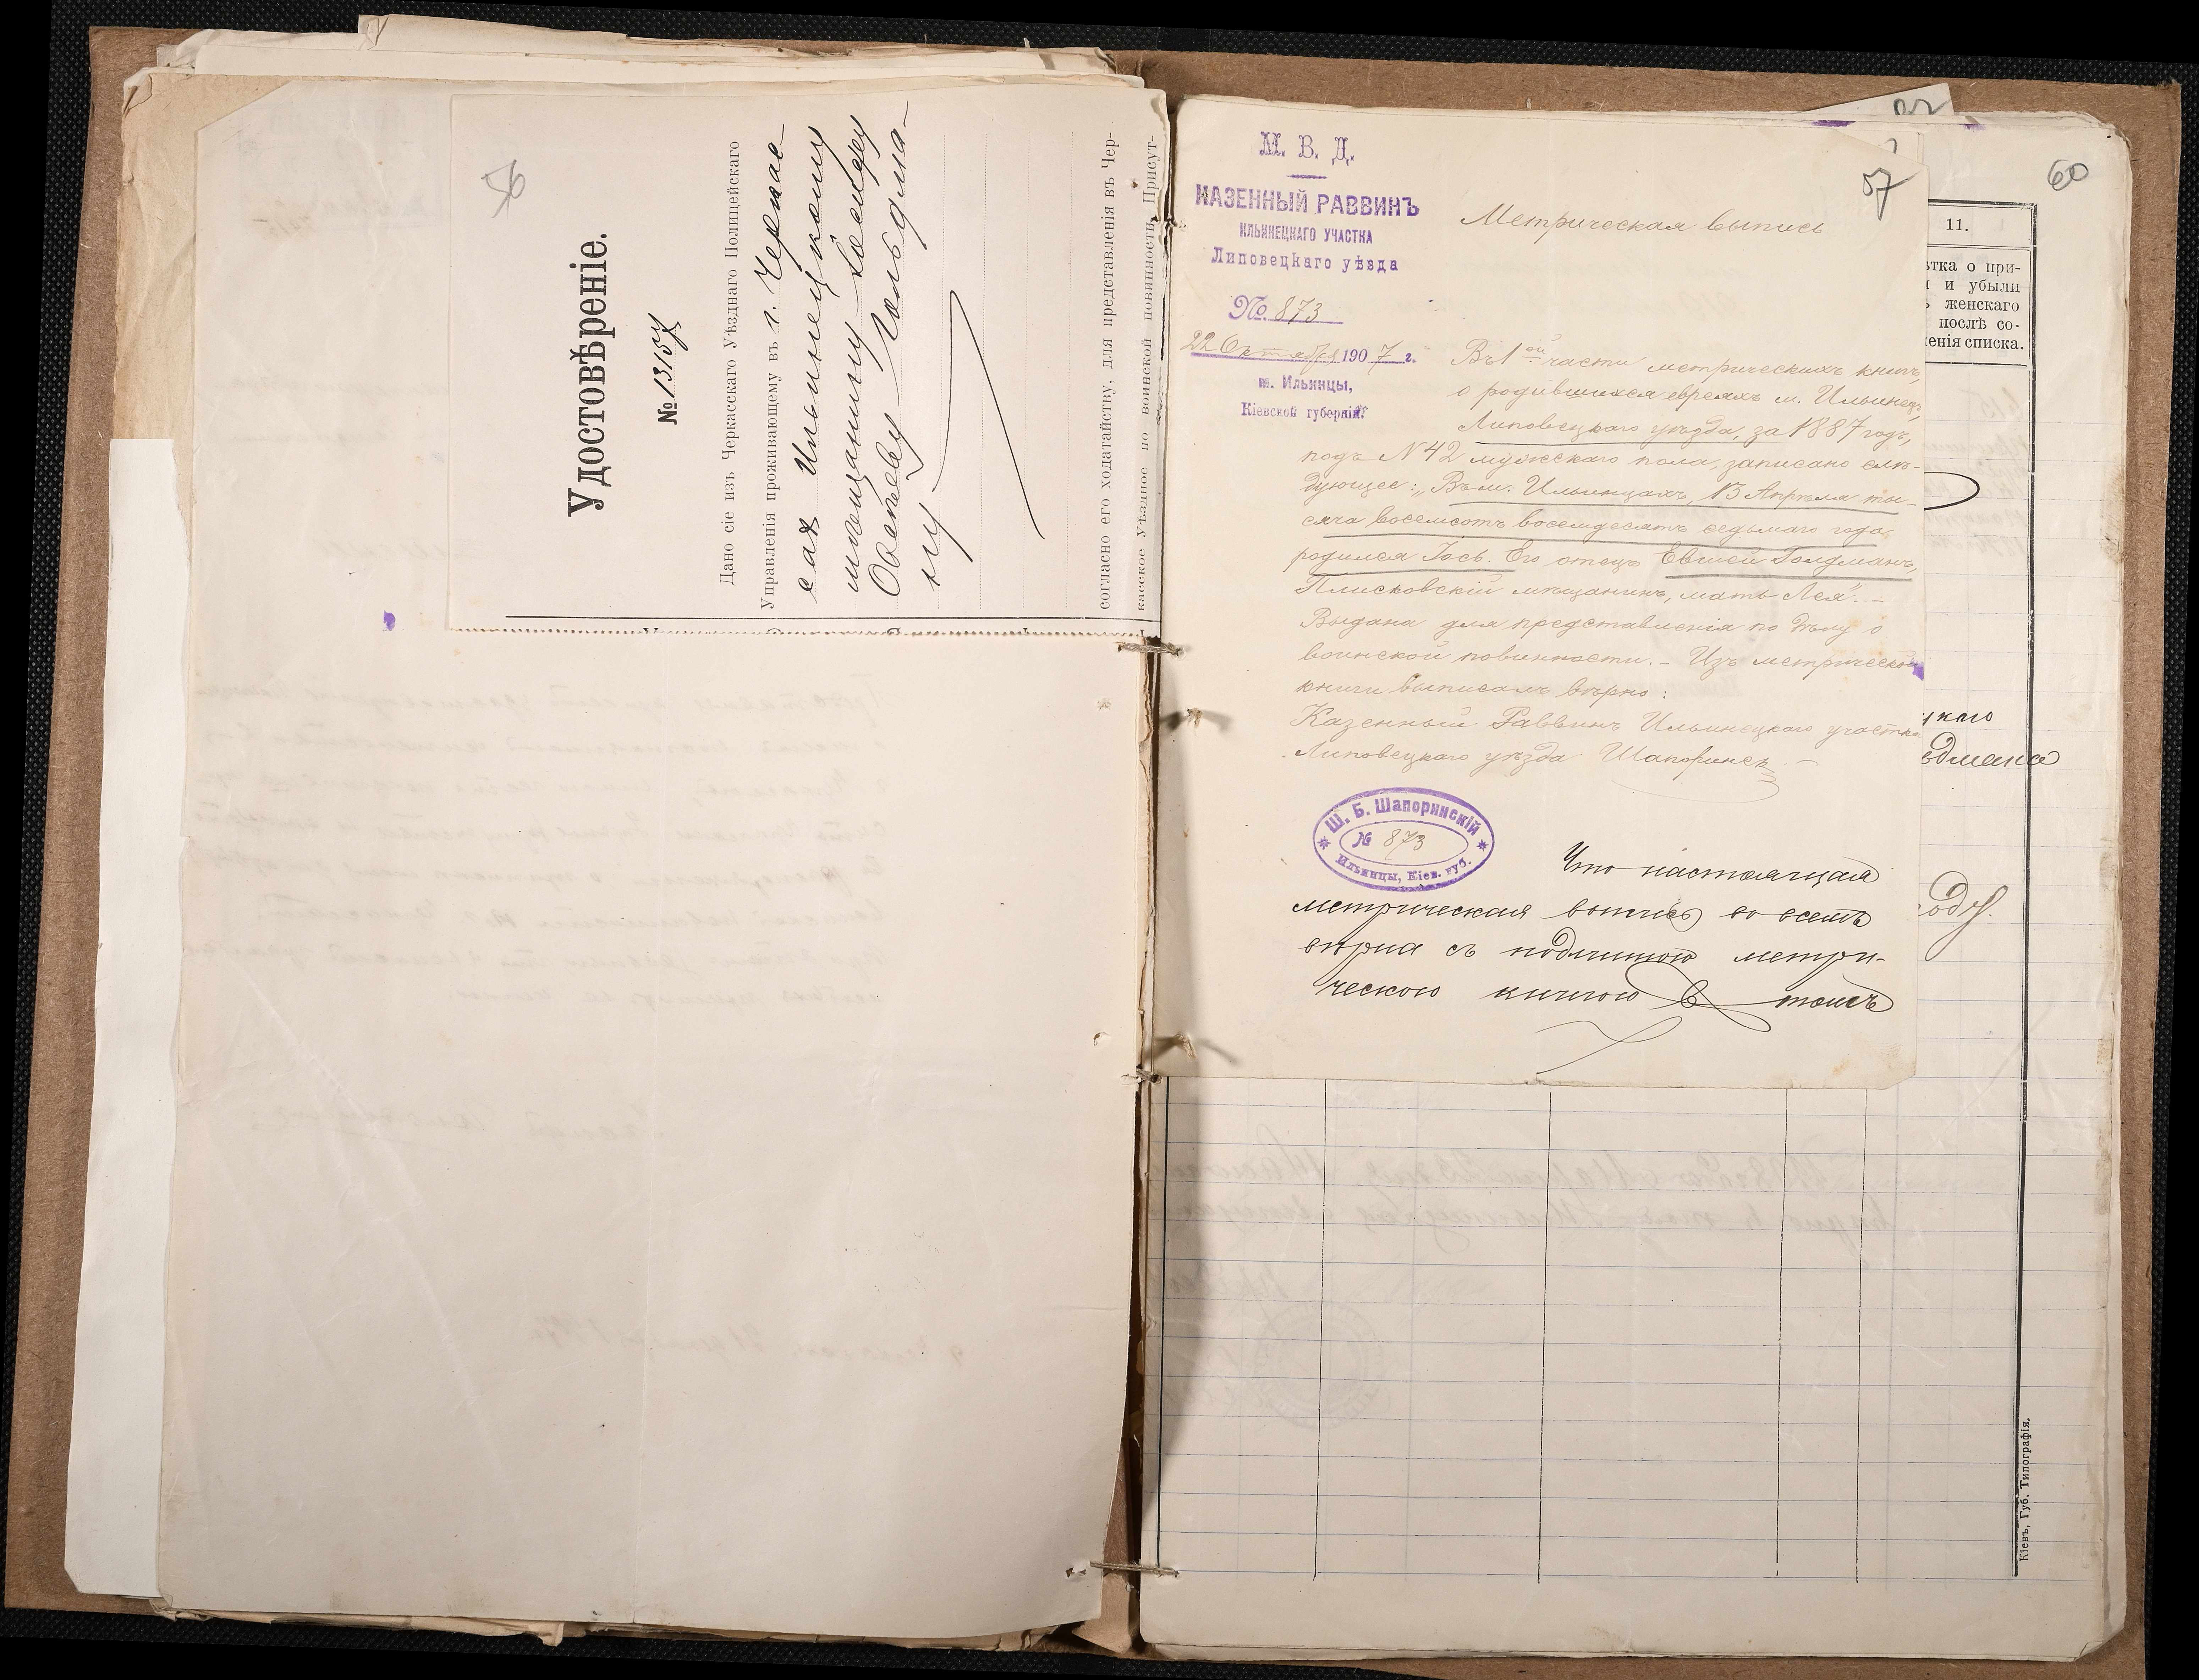 56
Удостовѣреніе.
№ 13157
Дано сіе изъ Черкасскаго Уѣзднаго Полицейскаго
Управленія проживающему въ г. Черкас-
сах Ильинецкому
мѣщанину
Гольдма-
ну
согласно его ходатайству, для представленія въ Чер-
касское Уѣздное по воинской повинности Присут-
57
М. В. Д.
КАЗЕННЫЙ РАВВИНЪ
ИЛЬИНЕЦКАГО УЧАСТКА
Липовецкаго уѣзда
№ 873
22 Октября 1907 г.
м. Ильинцы,
Кіевской губерніи.
Метрическая выпись
Въ 1ой части метрическихъ книгъ,
о родившихся евреяхъ м. Ильинецъ,
Липовецкаго уѣзда, за 1887 годъ,
подъ N 42 мужескаго пола, записано слѣ-
дующее: „Въ м. Ильинцахъ, 13 Апрѣля ты-
сяча восемсотъ восемдесятъ седьмаго года,
родился Іось. Его отецъ Евшей Голдманъ,
Плисковскій мѣщанинъ, мать Лея". –
Выдана для представленія по дѣлу о
воинской повинности. – Изъ метрической
книги выписалъ вѣрно:
Казенный Раввинъ Ильинецкаго участка
Липовецкаго уѣзда Шапоринск
Ш. Б. Шапоринскій
№ 873
Ильинцы, Кіев. губ.
Что настоящая
метрическая выпись во всемъ
вѣрна съ подлинною метри-
ческою книгою в томъ
60
11.
ѣтка о при-
и убыли
женскаго
послѣ со-
ленія списка.
цкаго
едмана
оду.
Кіевъ, Губ. Типографія.